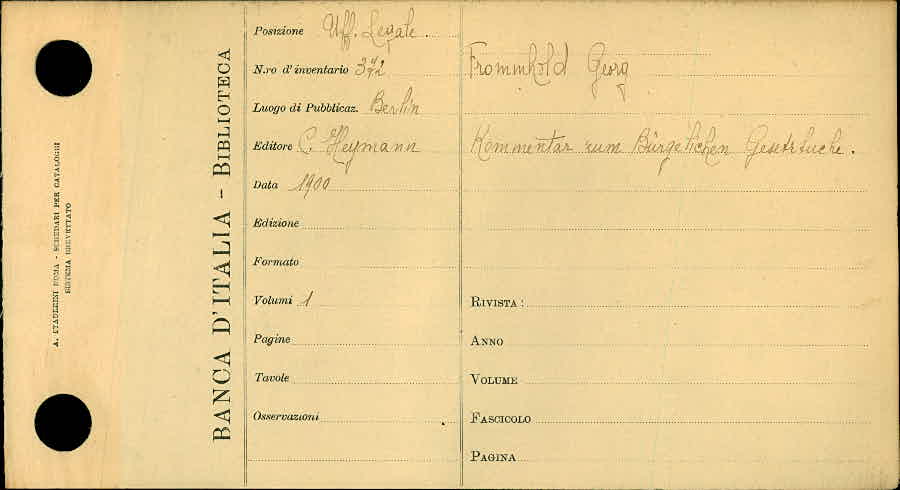 A. STADERINI ROMA - SCHEDARI PER CATALOGHI
SISTEMA BREVETTATO
BANCA D'ITALIA - BIBLIOTECA
Posizione Uff. Legale.
N.ro d'inventario
Luogo di Pubblicaz. Berlin
Editore C. Heymann
Data 1900
Edizione
Formato
Volumi 1
Pagine
Tavole
Osservazioni
Frommhold Georg
Kommentar zum Bürgerlichen Gesetzbuche.
RIVISTA:
ANNO
VOLUME
FASCICOLO
PAGINA